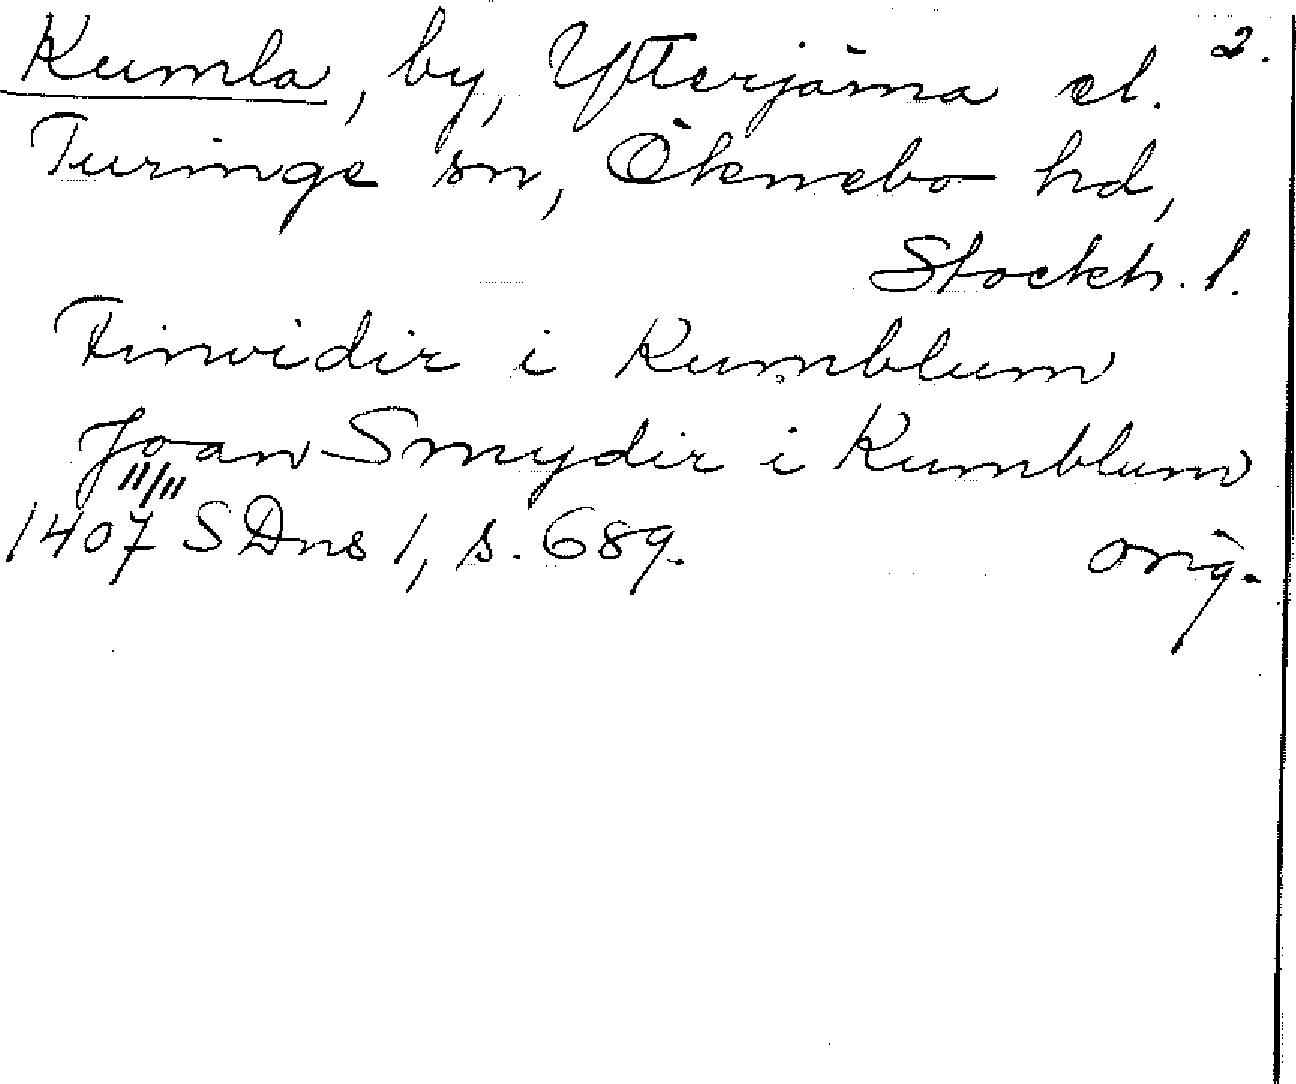 2.
Kumla, by, Ytterjärna el.
Turinge sn, Öknebo hd,
Stockh. l.
Finvidir i Kumblum
Joan Smydir i Kumblum
11/11
1407 SDns 1, s. 689. orig.